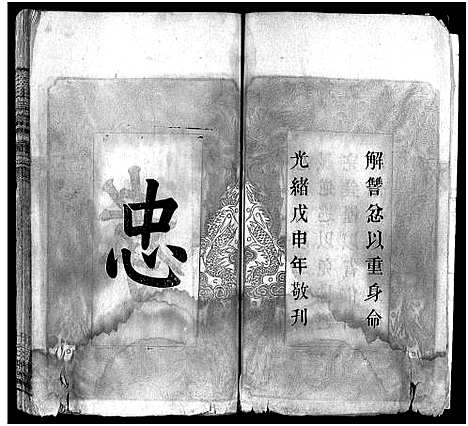 解讐忿以重身命
光緒戊申年敬刊
忠